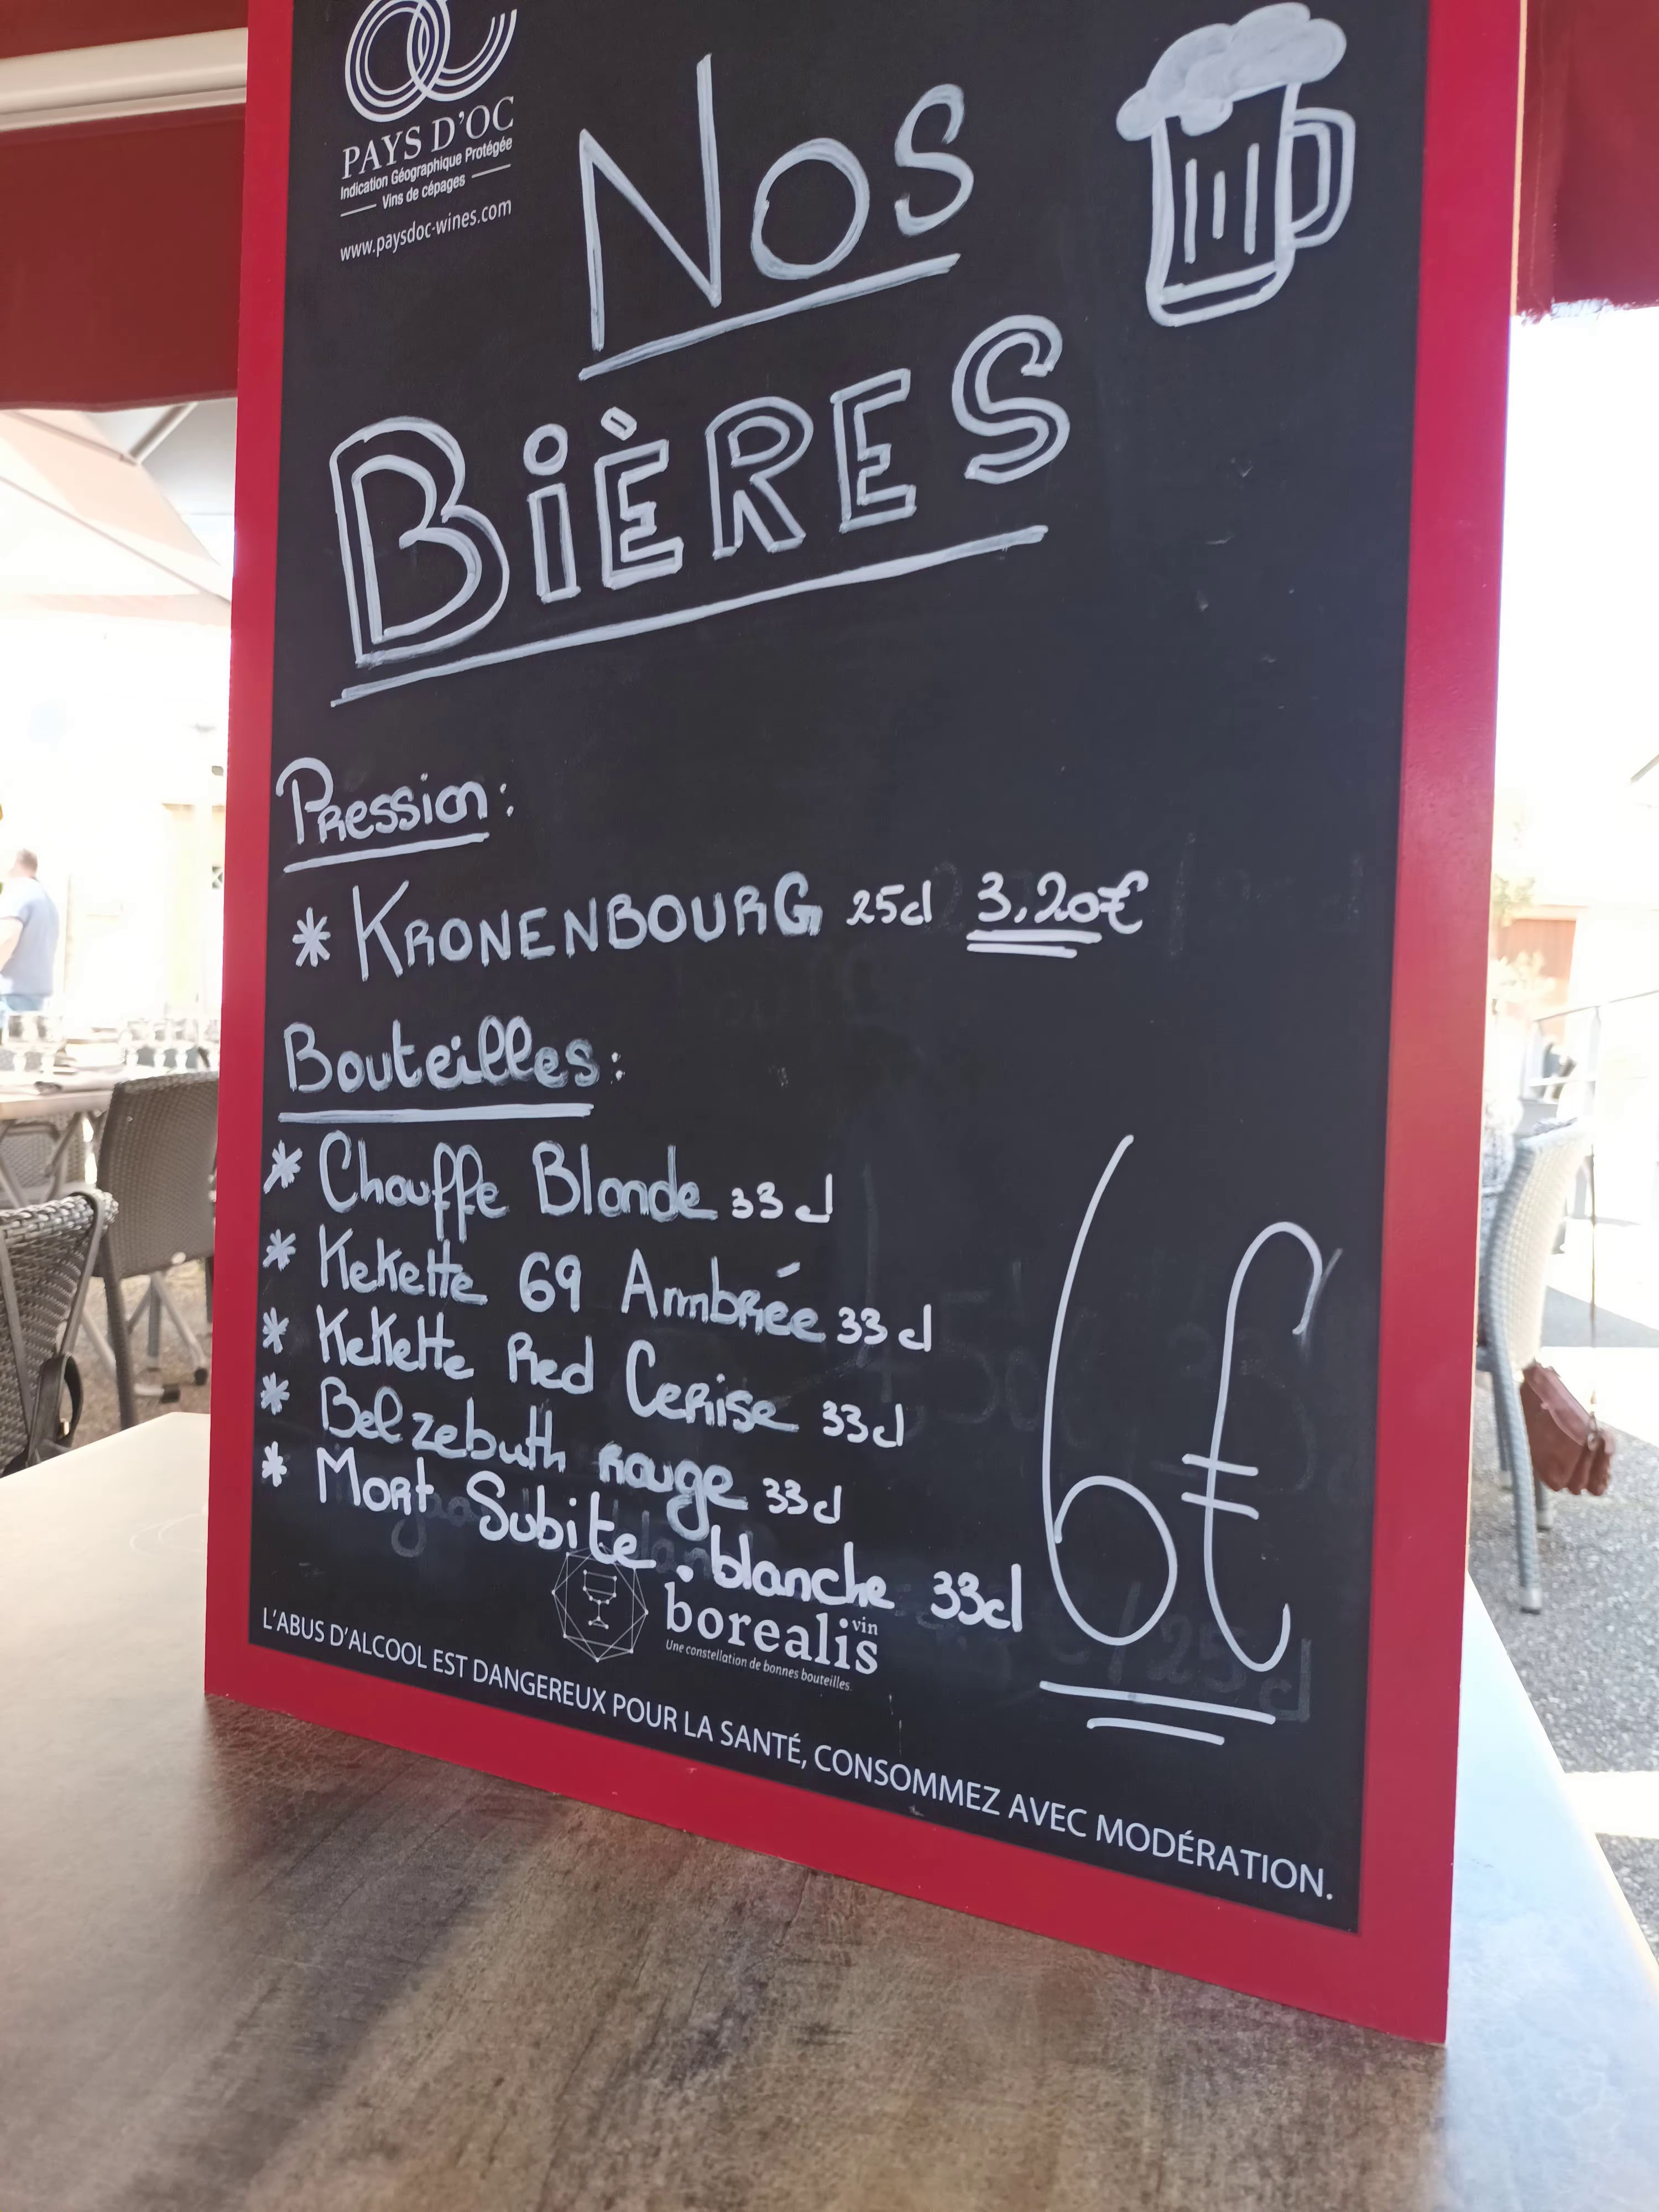 PAYS D'OC
Indication Géographique Protégée
Vins de cépages
www.paysdoc-wines.com
NOS
BIÈRES
Pression :
* KRONENBOURG 25cl 3,20€
Bouteilles :
* Chouffe Blonde 33cl
* Kekette 69 Ambrée 33cl
* Kekette Red Cerise 33cl
* Belzebuth rouge 33cl
* Mort Subite blanche 33cl
6€
borealis
vin
Une constellation de bonnes bouteilles.
L'ABUS D'ALCOOL EST DANGEREUX POUR LA SANTÉ, CONSOMMEZ AVEC MODÉRATION.